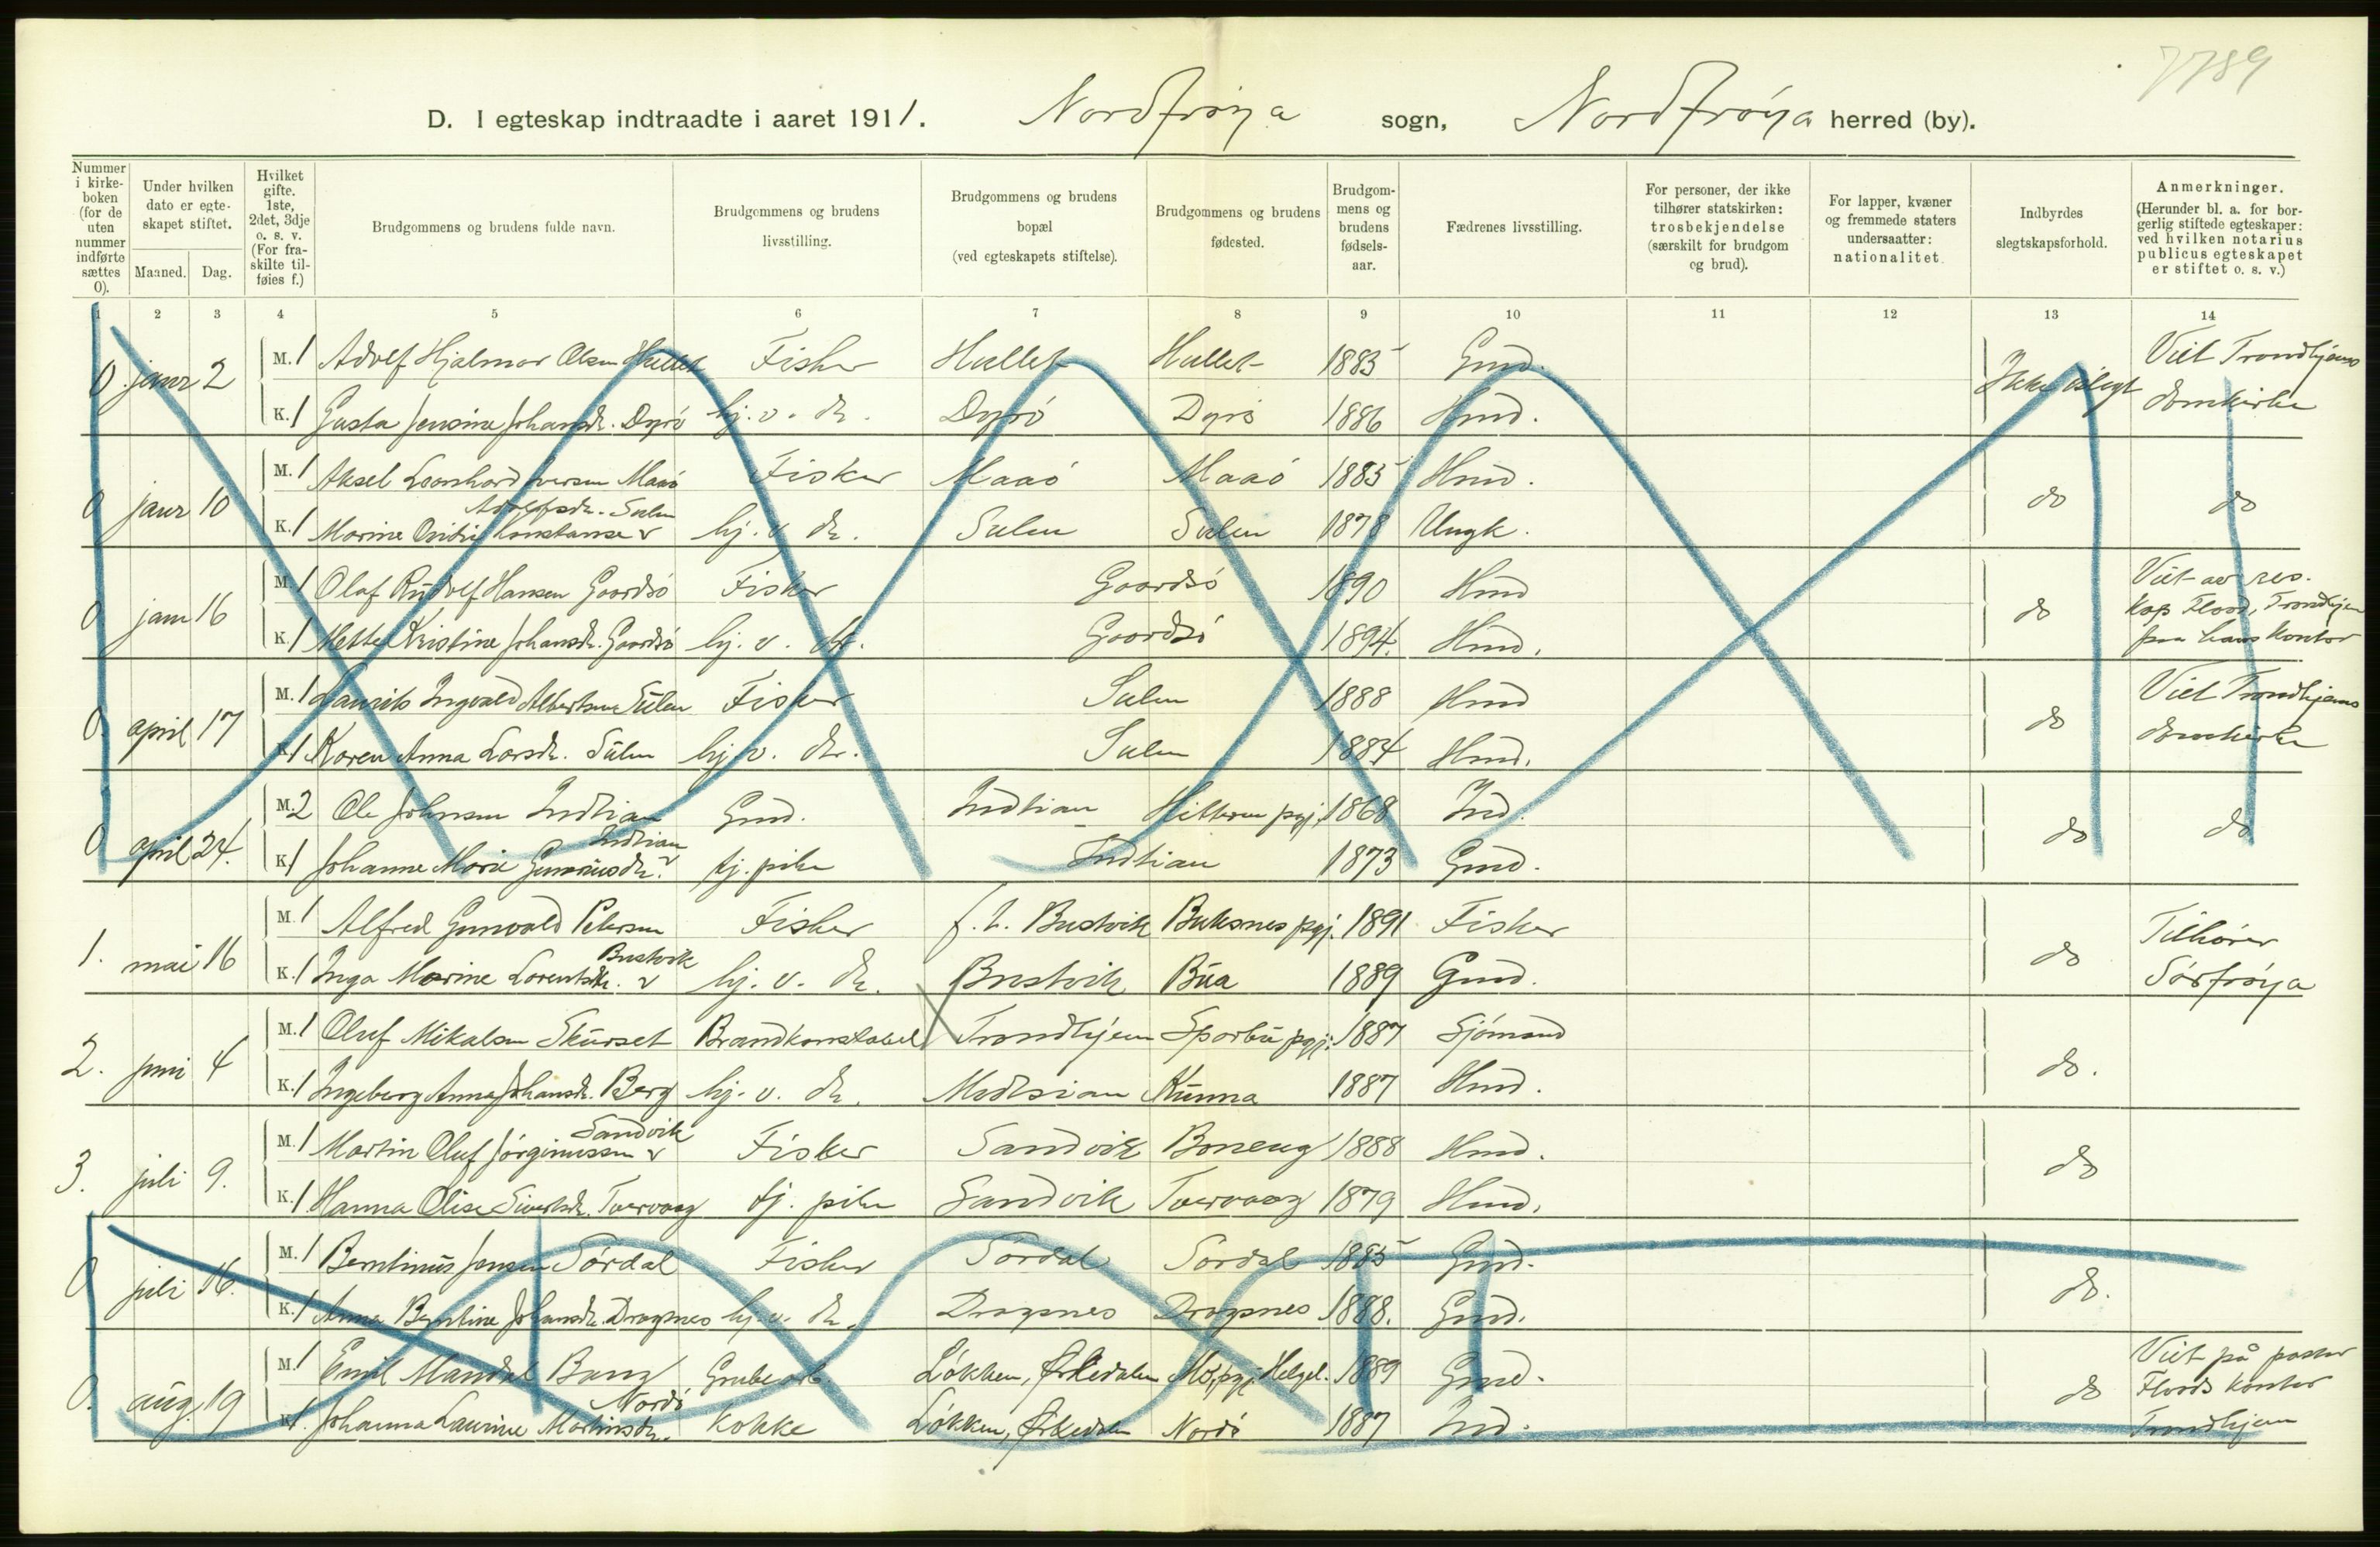 7789
D. I egteskap indtraadte i aaret 1911. Nordfrøya sogn, Nordfrøya herred (by).
Nummer i kirke-boken (for de uten nummer indførte sættes 0).
Under hvilken dato er egte-skapet stiftet.
Maaned. Dag.
Hvilket gifte. 1ste, 2det, 3dje o. s. v. (For fra-skilte til-føies f.)
Brudgommens og brudens fulde navn.
Brudgommens og brudens livsstilling.
Brudgommens og brudens bopæl (ved egteskapets stiftelse).
Brudgommens og brudens fødested.
Brudgom-mens og brudens fødsels-aar.
Fædrenes livsstilling.
For personer, der ikke tilhører statskirken: trosbekjendelse (særskilt for brudgom og brud).
For lapper, kvæner og fremmede staters undersaatter: nationalitet.
Indbyrdes slegtskapsforhold.
Anmerkninger. (Herunder bl. a. for bor-gerlig stiftede egteskaper: ved hvilken notarius publicus egteskapet er stiftet o. s. v.)
1 2 3 4 5 6 7 8 9 10 11 12 13 14
0 janr 2 M. 1 Adolf Hjalmar Olsen Hallet Fisker Hallet Hallet 1885 Gmd. Ikke i slegt Viet Trondhjems
K. 1 Gusta Jensine Johansdr. Dyrö hj. v. dr. Dyrö Dyrö 1886 Hmd. domkirke
0 janr 10 M. 1 Aksel Leonhard Iversen Maaö Fisker Maaö Maaö 1885 Hmd. do do
Adolfsdr. Sulen
K. 1 Marine Konstanse v hj. v. dr. Sulen Sulen 1878 Ungk.
0 janr 16 M. 1 Olaf Rudolf Hansen Gaardsö Fisker Gaardsö 1890 Hmd do Viet av res. Kap Flood, Trondhjem
K. 1 Mette Kristine Johansdr. Gaardsö hj. v. dr. Gaardsö 1894. Hmd. paa hans kontor
0. april 17 M. 1 Laurits Ingvald Albertsen Sulen Fisker Sulen 1888 Hmd do Viet Trondhjems
K. 1 Karen Anna Larsdr. Sulen hj v. dr. Sulen 1884 Hmd. domkirke
0 april 24. M. 2 Ole Johnsen Indtian Gmd. Indtian Hitteren pgj. 1868 Ind. do do
Indtian
K. 1 Johanne Marie Gunnarsdr. v tj. pike Indtian 1873 Gmd.
1. mai 16 M. 1 Alfred Gunvald Petersen Fisker f. t. Bustvik Buksnes pgj. 1891 Fisker do Tilhører
Bustvik
K. 1 Inga Marine Lorentsdr. v hj. v. dr. Bustvik Bua 1889 Gmd. Sörfröya
2. juni 4 M. 1 Oluf Mikalsen Skurset Brandkonstabel Trondhjem Sparbu pgj. 1887 Sjömand do.
K. 1 Ingeborg Anna Johansdr. Berg hj. v. dr. Medsian Kunna 1887 Hmd.
Sandvik
3. juli 9. M. 1 Martin Oluf Jörginussen v Fisker Sandvik Boneng 1888 Hmd. do
K. 1 Hanna Elise Sivertsdr. Tverraag tj. pike Sandvik Tverraag 1879 Hmd.
0 juli 16. M. 1 Berntinus Jensen Sördal Fisker Sördal Sördal 1885 Gmd. do.
K. 1 Anna Berntine Johansdr. Dragsnes hj. v. dr. Dragsnes Dragsnes 1888. Gmd.
0. aug. 19 M. 1 Emil Mandal Bang Grubearb. Løkken, Ørkedalen Mo, pgj. Helgel. 1889 Gmd. do Viet på pastor Floods kontor
Nordö
K. 1. Johanna Laurine Martinsdr. Kokke Løkken, Ørkedalen Nordö 1887 Ind. Trondhjem